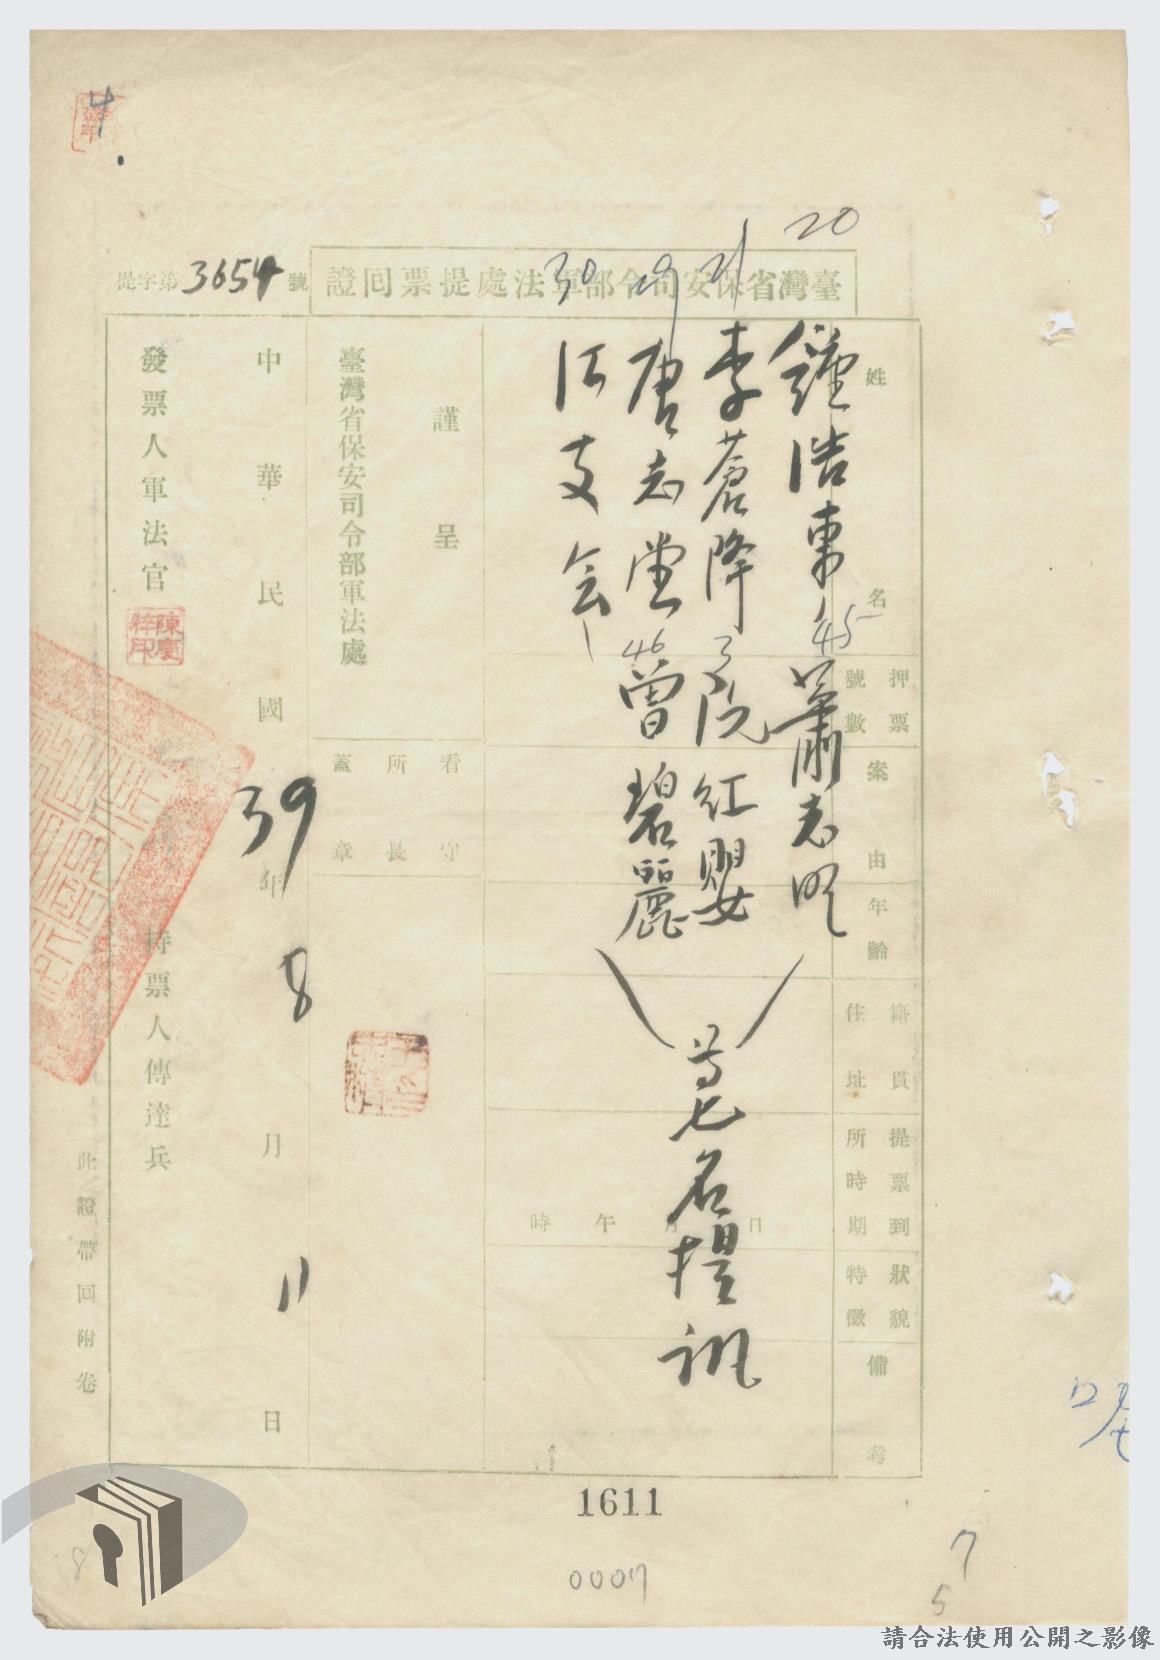 臺灣省保安司令部軍法處提票回證
提字第3654號
20
21
29
30
姓名
押票號數
案由
年齡
籍貫住址
提票到所時期
狀貌特徵
備考
鍾浩東 45 蕭志明
李蒼降 3 阮紅嬰
唐志堂 46 曾碧麗
江支会
等七名提訊
日 月 午 時
謹呈
臺灣省保安司令部軍法處
看守所長蓋章
中華民國39年8月11日
發票人軍法官
陳慶粹印
持票人傳達兵
此證帶回附卷
1611
0007
7
5
8
請合法使用公開之影像